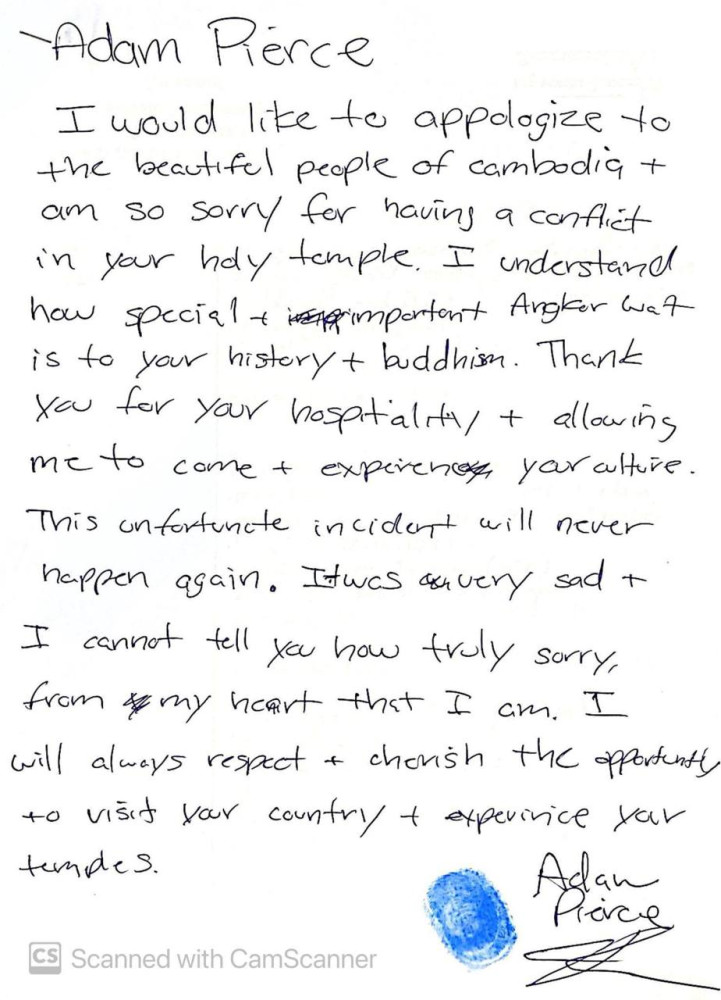 Adam Pierce
I would like to appologize to
the beautiful people of cambodia +
am so sorry for having a conflict
in your holy temple. I understand
how special + important Angker Wat
is to your history + buddhism. Thank
you for your hospitality + allowing
me to come + experience your culture.
This unfortunate incident will never
happen again. It was very sad +
I cannot tell you how truly sorry,
from my heart that I am. I
will always respect + cherish the opportunity
to visit your country + experivice your
temples.
Adam
Pierce
CS Scanned with CamScanner